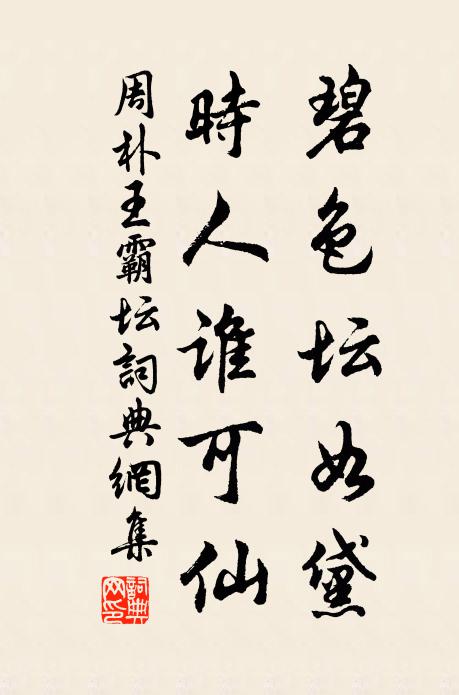 碧色坛如黛
時人谁可仙
周朴王霸坛詞典網集
詞典网印